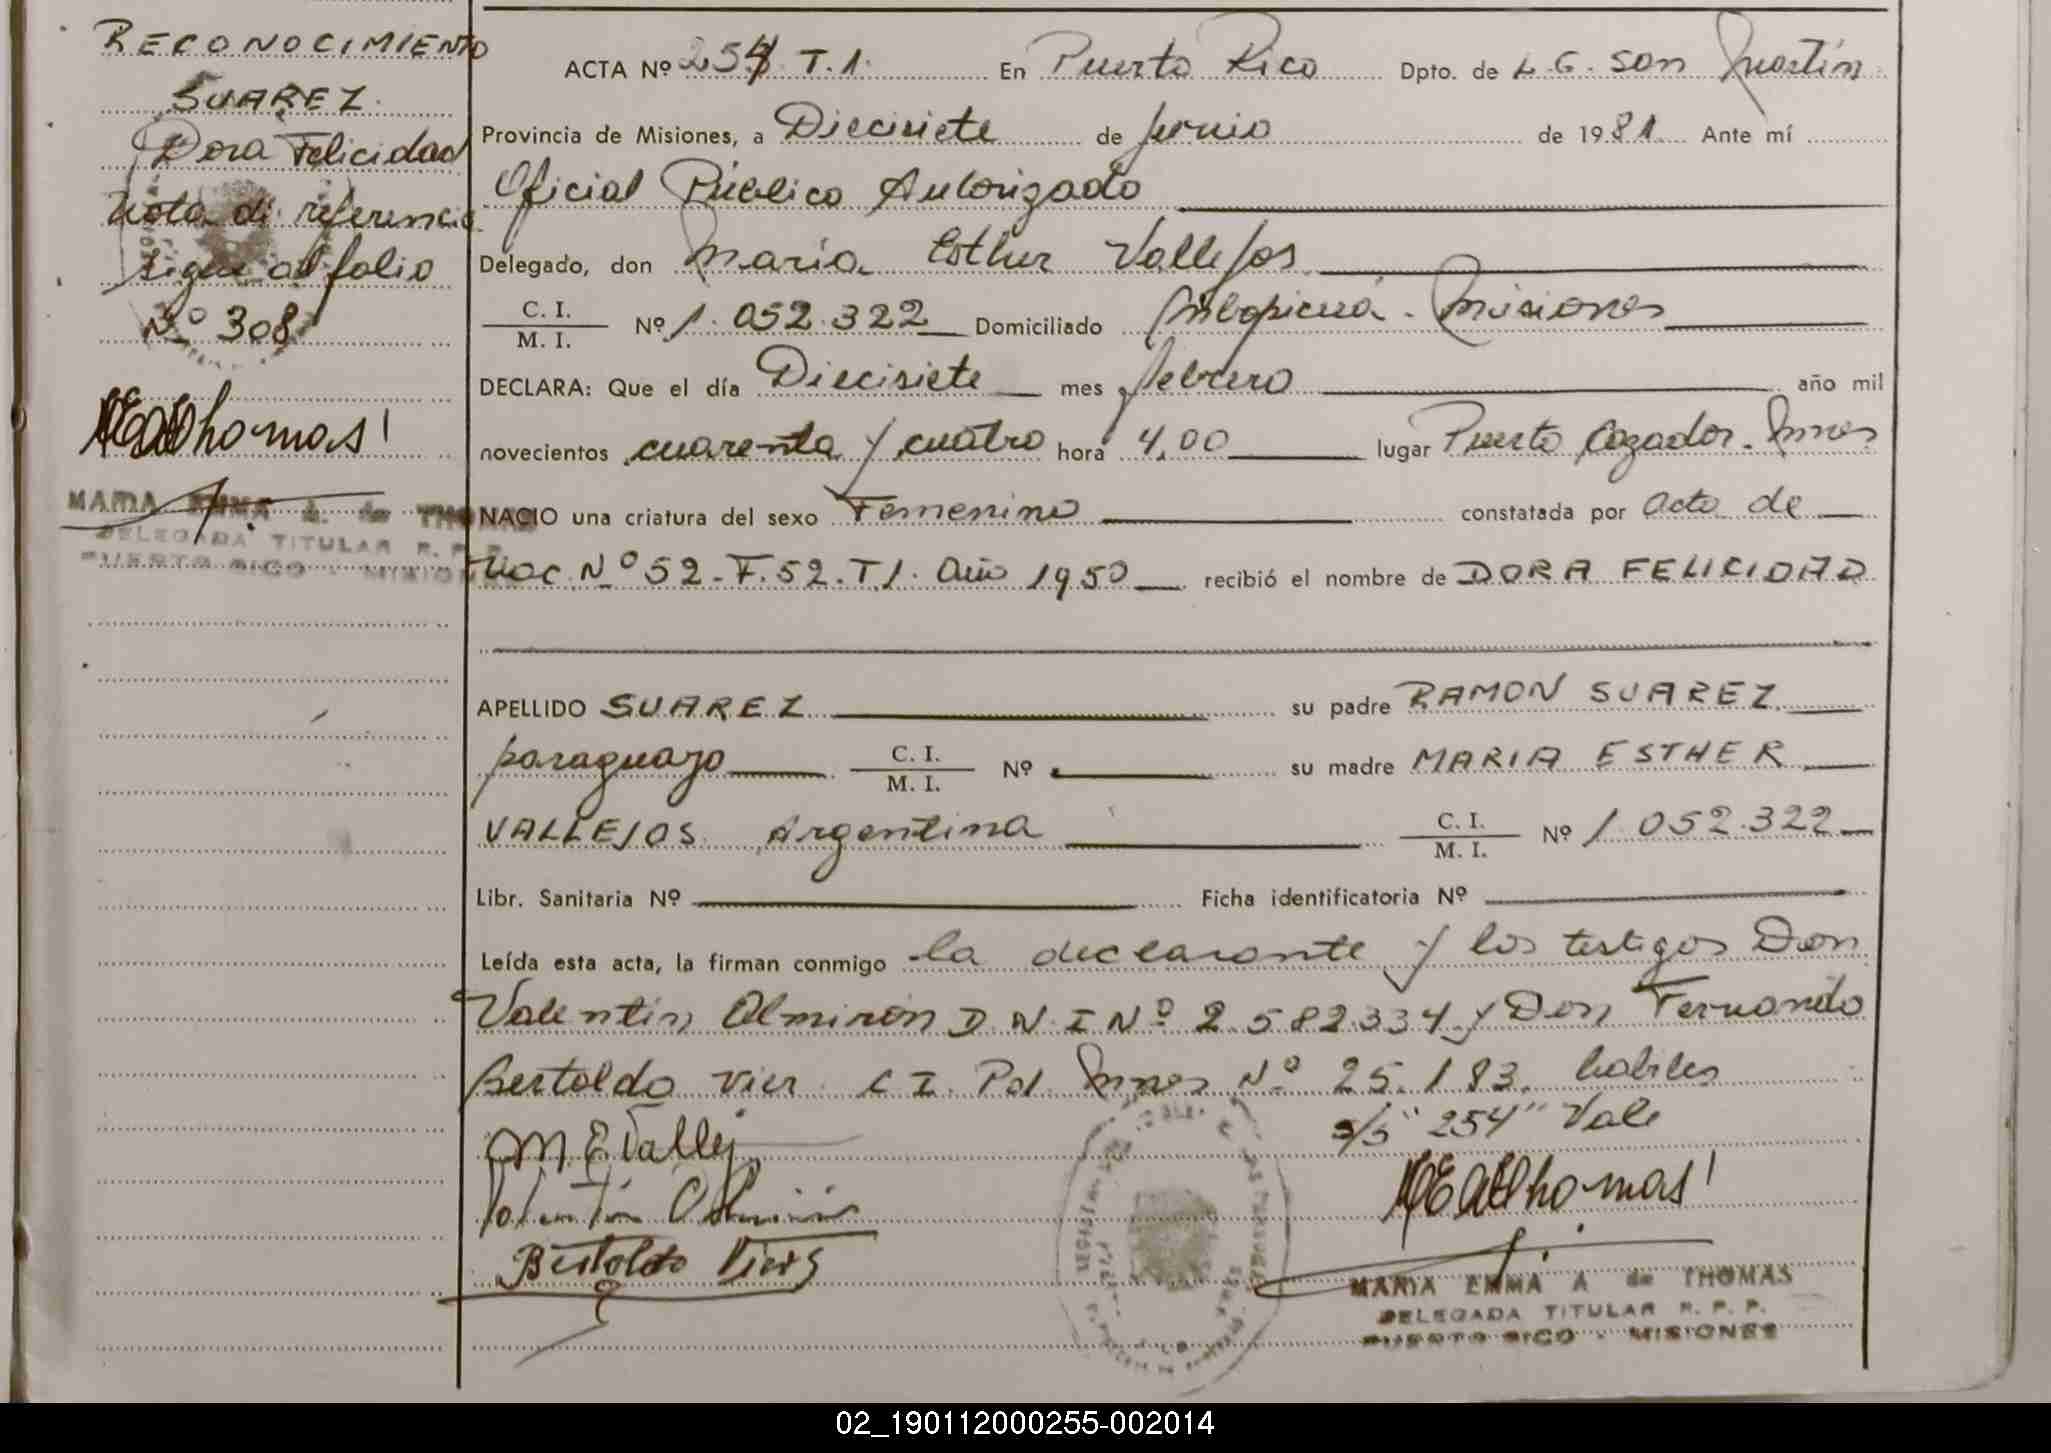 RECONOCIMIENTO
SUAREZ
Dora Felicidad
Nota de referencia
sigue al folio
Nº 308
MEAdThomas
MARIA EMMA A. de THOMAS
DELEGADA TITULAR R. P. P.
PUERTO RICO - MISIONES
ACTA Nº 254 T.1. En Puerto Rico Dpto. de L.G. San Martín
Provincia de Misiones, a Diecisiete de junio de 1981 Ante mí
Oficial Público Autorizado
Delegado, don María Esther Vallejos
C. I.
M. I.
Nº 1.052.322 Domiciliado Misiones
DECLARA: Que el día Diecisiete mes febrero año mil
novecientos cuarenta y cuatro hora 4,00 lugar Puerto Cazador. Mnes
NACIO una criatura del sexo Femenino constatada por acta de
Nac. Nº 52-F.52.T1. Año 1950 recibió el nombre de DORA FELICIDAD
APELLIDO SUAREZ su padre RAMON SUAREZ
paraguayo C. I.
M. I.
Nº su madre MARIA ESTHER
VALLEJOS. Argentina C. I.
M. I.
Nº 1.052.322
Libr. Sanitaria Nº Ficha identificatoria Nº
Leída esta acta, la firman conmigo la declarante y los testigos Don
Valentín Almirón D.N.I Nº 2.582.334 y Don Fernando
Bertoldo Vier C.I. Pol. Mnes Nº 25.183. habiles
s/5 "254" Vale
M E Vallej
Valentín Almirón
Bertoldo Viers
MEAdThomas
MARIA EMMA A de THOMAS
DELEGADA TITULAR R. P. P.
PUERTO RICO - MISIONES
02_190112000255-002014